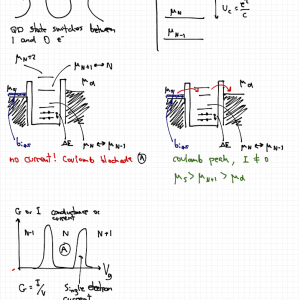 QD state switches between
1 and 0 e⁻
μ_N
μ_N-1
U_c = e²/C
μ_N+2
μ_N+1 ↔ N
μ_d
bias
ΔE
μ_N ↔ μ_N-1
no current! Coulomb blockade Ⓐ
μ_d
bias
ΔE
μ_N ↔ μ_N-1
coulomb peak, I ≠ 0
μ_s > μ_N+1 > μ_d
G or I conductance or
current
N-1 N N+1
Ⓐ
V_g
G = I/V
Single electron
current